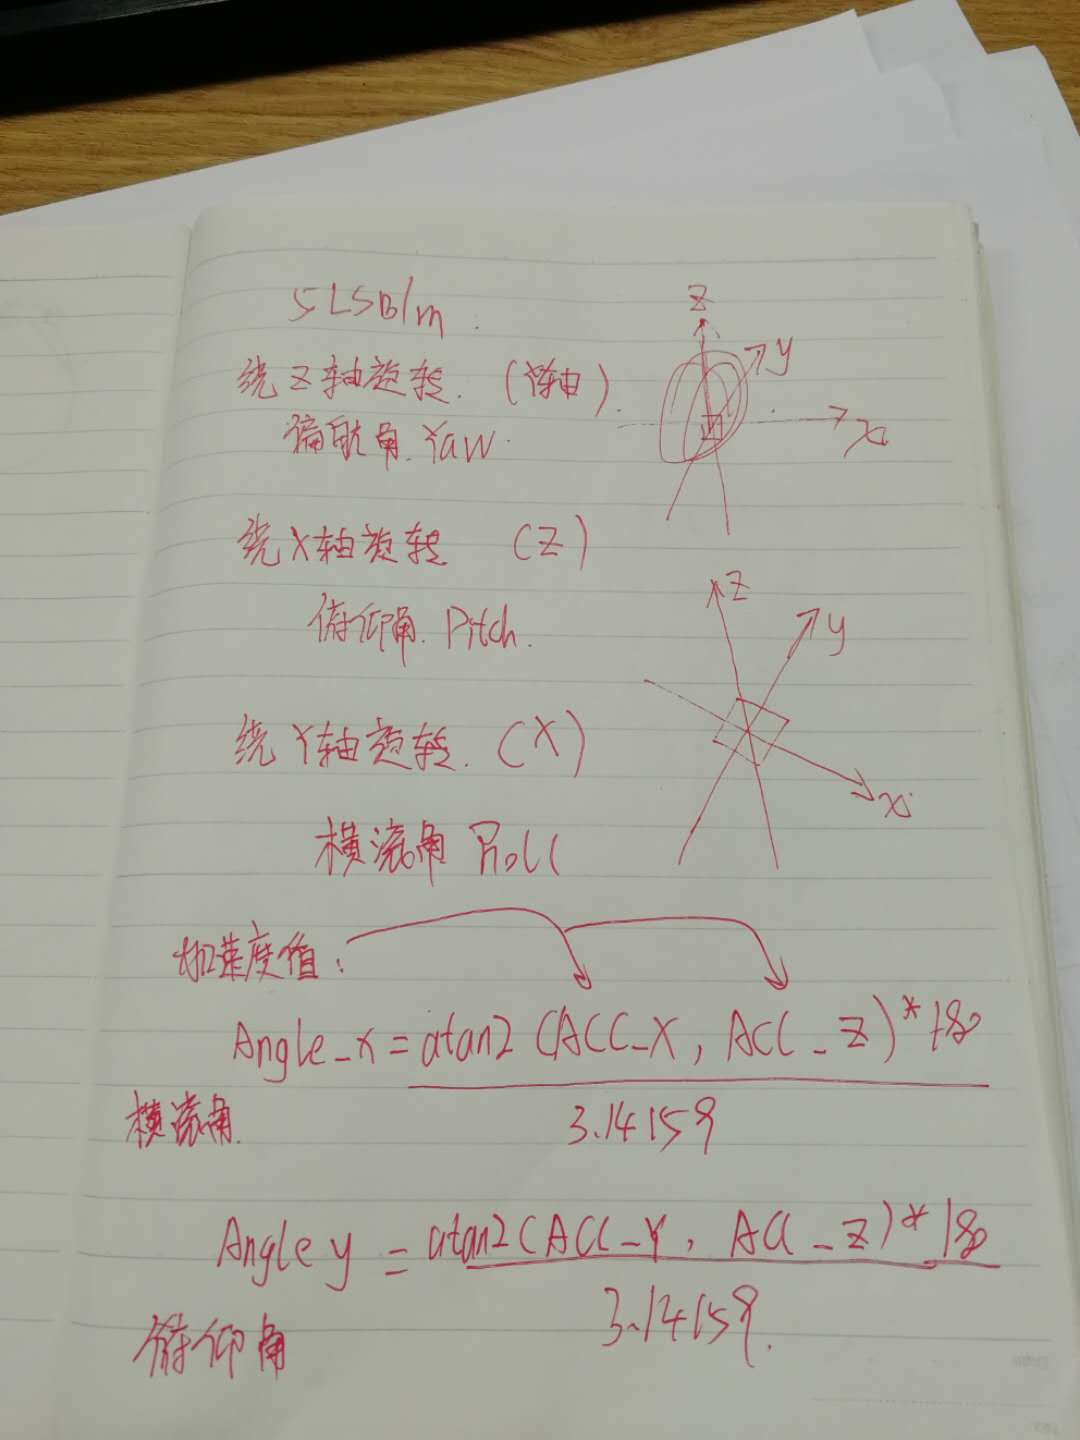 5LSB/m
绕Z轴旋转.(Y轴).
偏航角.Yaw.
绕X轴旋转 (Z)
俯仰角.Pitch.
绕Y轴旋转.(X)
横滚角 Roll
加速度值:
Angle_x=atan2(ACC_X, ACC_Z)*180
3.14159
横滚角.
Angle y = atan2(ACC_Y, ACC_Z)*180
3.14159.
俯仰角
Z
y
x
Z
y
x